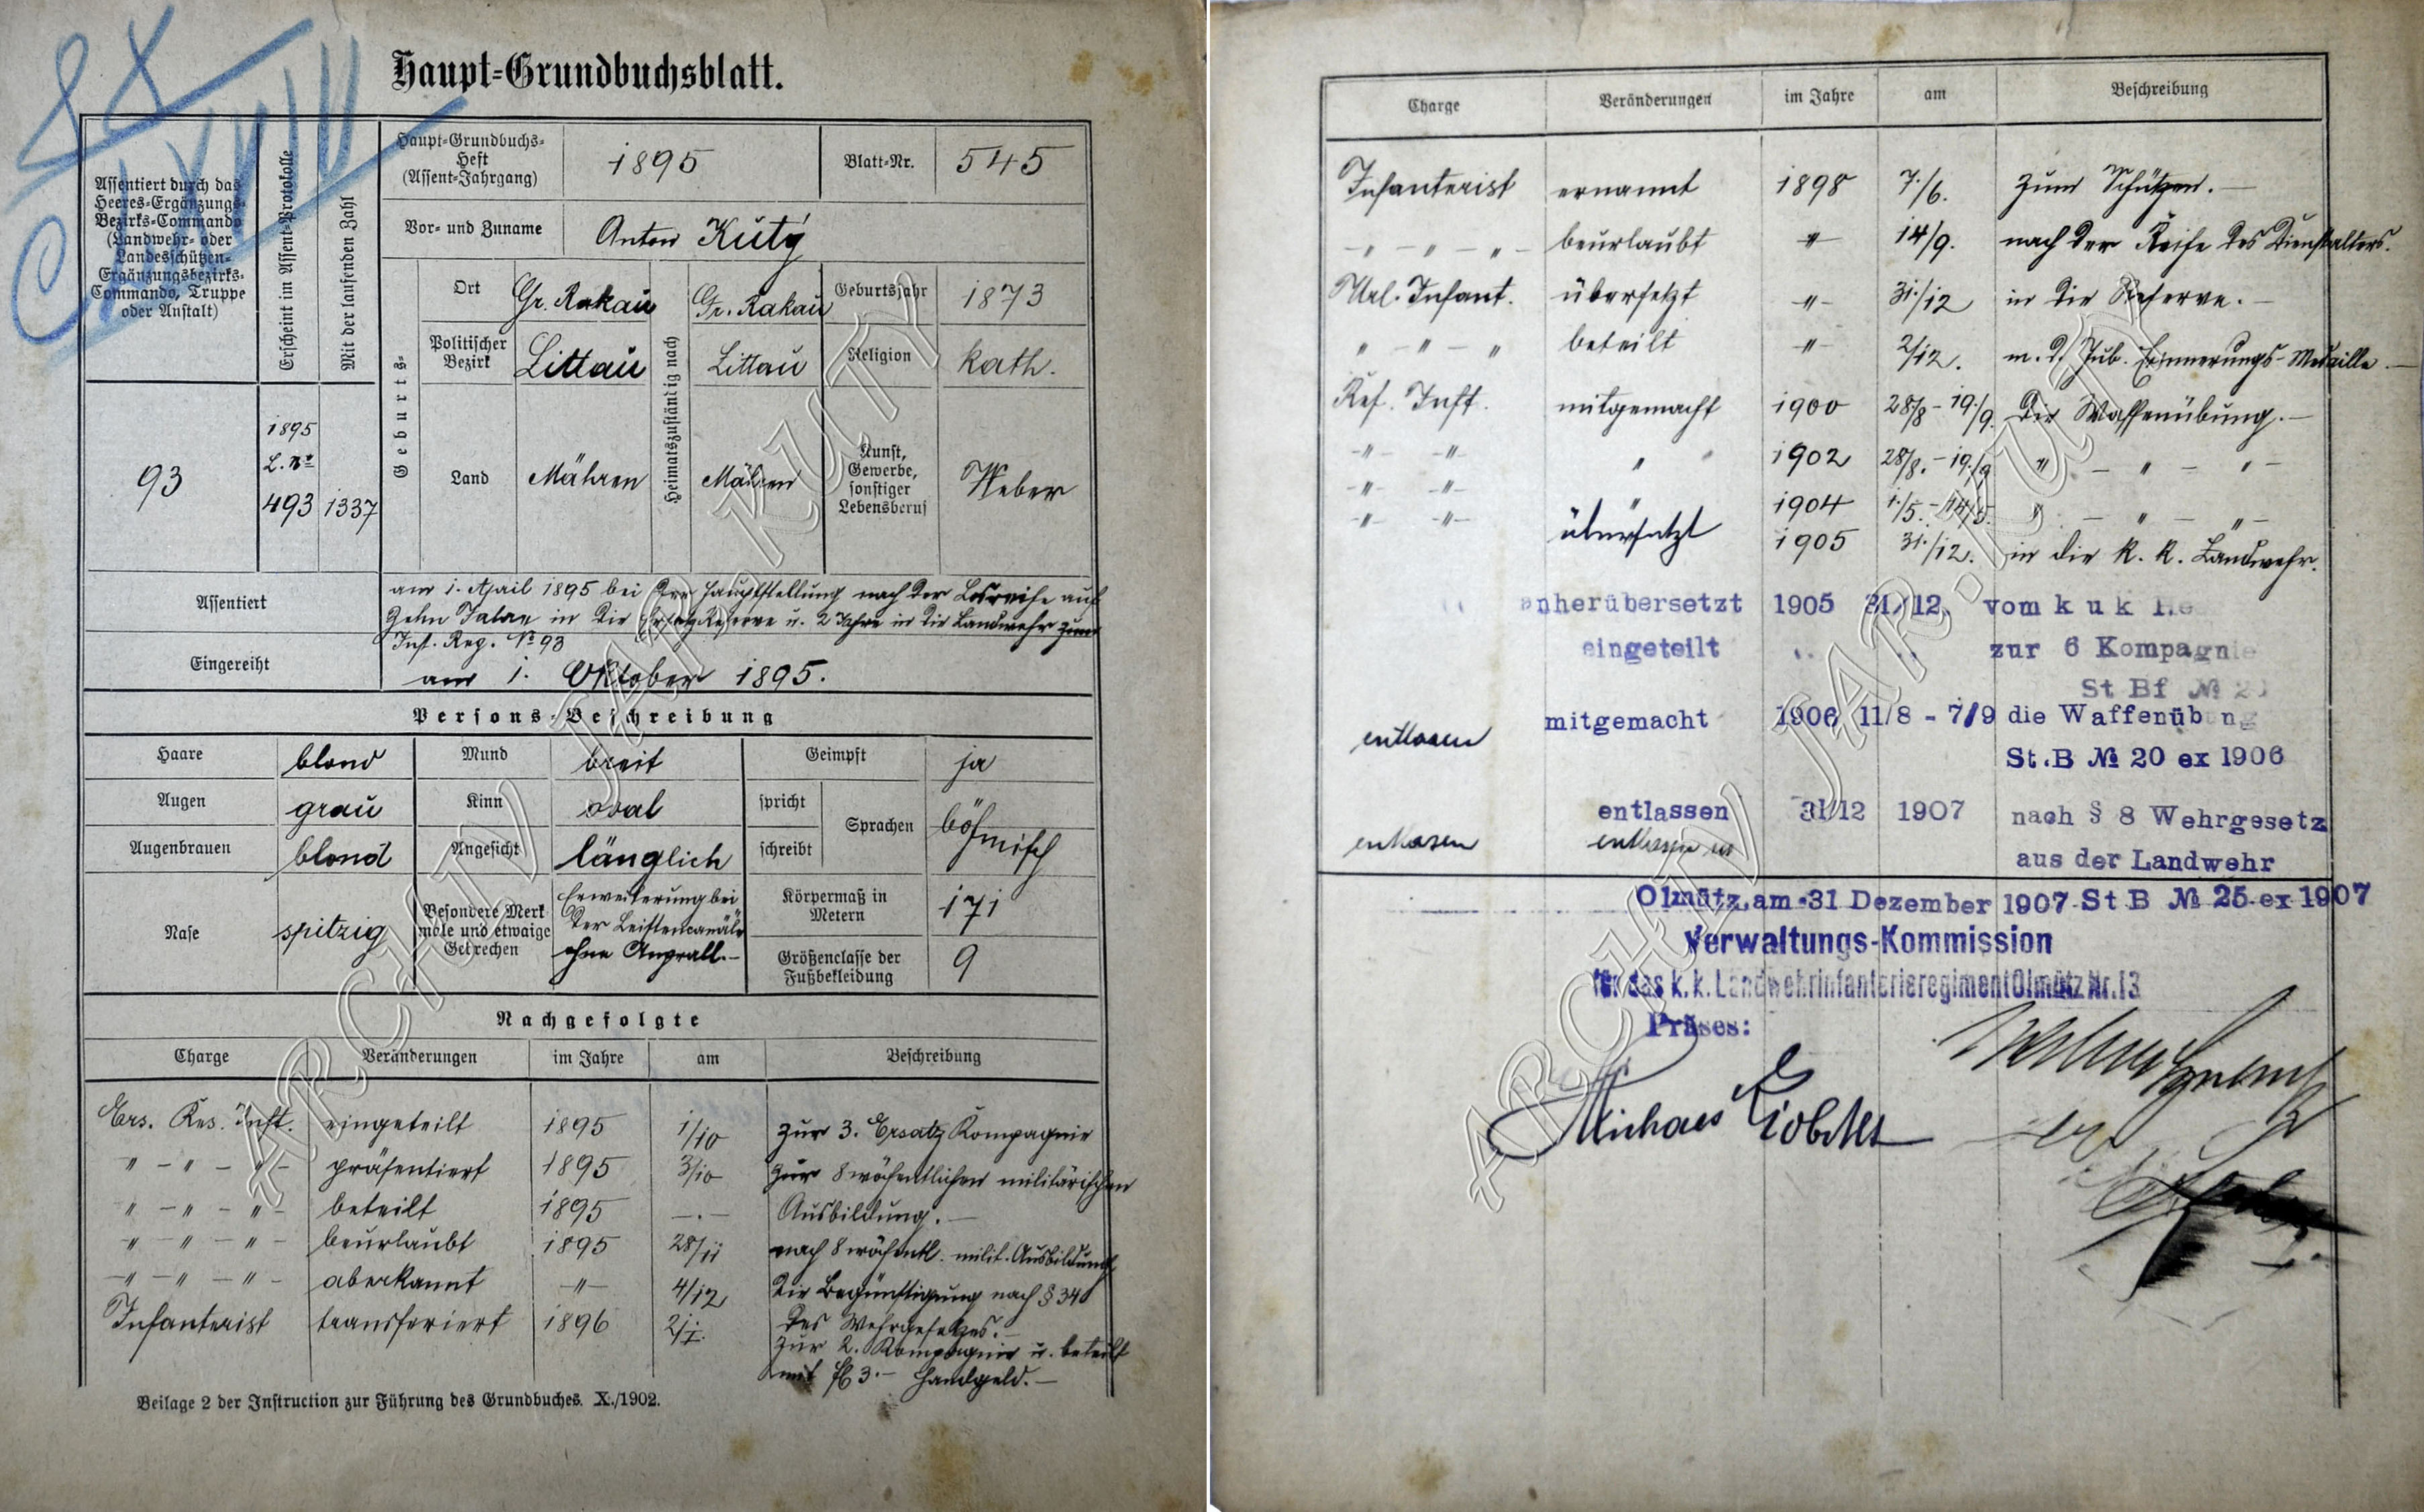 Haupt-Grundbuchsblatt.
Assentiert durch das
Heeres-Ergänzungs-
Bezirks-Commando
(Landwehr- oder
Landesschützen-
Ergänzungsbezirks-
Commando, Truppe
oder Anstalt)
Erscheint im Assent-Protokolle
Mit der laufenden Zahl
Haupt-Grundbuchs-
Heft
(Assent-Jahrgang)
1895
Blatt-Nr.
545
Vor- und Zuname
Anton Kutý
Geburts-
Ort
Gr. Rakau
Heimatszuständig nach
Gr. Rakau
Geburtsjahr
1873
Politischer
Bezirk
Littau
Littau
Religion
kath.
93
1895
L. No
493
1337
Land
Mähren
Mähren
Kunst,
Gewerbe,
sonstiger
Lebensberuf
Weber
Assentiert
am 1. April 1895 bei der Hauptstellung nach der Losreihe auf
Zehn Jahre in die Ersatz Reserve u. 2 Jahre in die Landwehr zum
Inf. Reg. No 93
Eingereiht
am 1. Oktober 1895.
Persons-Beschreibung
Haare
blond
Mund
breit
Geimpft
ja
Augen
grau
Kinn
oval
spricht
Sprachen
böhmisch
Augenbrauen
blond
Angesicht
länglich
schreibt
Nase
spitzig
Besondere Merk
male und etwaige
Gebrechen
Erweiterung bei
der Leistencanäle
ohne Anprall.-
Körpermaß in
Metern
171
Größenclasse der
Fußbekleidung
9
Nachgefolgte
Charge Veränderungen im Jahre am Beschreibung
Ers. Res. Inft. eingeteilt 1895 1/10 zur 3. Ersatz Kompagnie
" - " - " - präsentiert 1895 3/10 zur 8 wöchentlichen militärischen
" - " - " - beteilt 1895 -.- Ausbildung.-
" - " - " - beurlaubt 1895 28/11 nach 8 wöchentl. milit. Ausbildung
" - " - " - aberkannt -"- 4/12 die Begünstigung nach § 34
des Wehrgesetzes.-
Infanterist transferiert 1896 21/I. zur 2. Kompagnie u. beteilt
mit fl 3.- Handgeld.-
Beilage 2 der Instruction zur Führung des Grundbuches. X./1902.
Charge Veränderungen im Jahre am Beschreibung
Infanterist ernannt 1898 7./6. zum Schützen.-
- " - " - " - beurlaubt -"- 14/9. nach der Reihe des Dienstalters.
Url. Infant. übersetzt -"- 31./12 in die Reserve.-
" - " - " beteilt -"- 2/12. m. d. Jub. Erinnerungs-Medaille.-
Res. Inft. mitgemacht 1900 28/8 - 19./9. die Waffenübung.-
-"- -"- " 1902 28/8. - 19./9 " - " - " -
-"- -"- " 1904 1./5. - 14/5. " - " - "-
-"- -"- übersetzt 1905 31./12. in die k. k. Landwehr.
anherübersetzt 1905 31/12 vom k u k
eingeteilt zur 6 Kompagnie
St Bf № 20
mitgemacht 1906 11/8 - 7/9 die Waffenübung
entlassen
St.B № 20 ex 1906
entlassen 31/12 1907 nach § 8 Wehrgesetz
entlassen
aus der Landwehr
Olmütz, am 31 Dezember 1907 St B № 25 ex 1907
Verwaltungs-Kommission
für das k. k. Landwehrinfanterieregiment Olmütz Nr. 13
Präses:
ARCHIV JAR. KUTÝ
ARCHIV JAR. KUTÝ